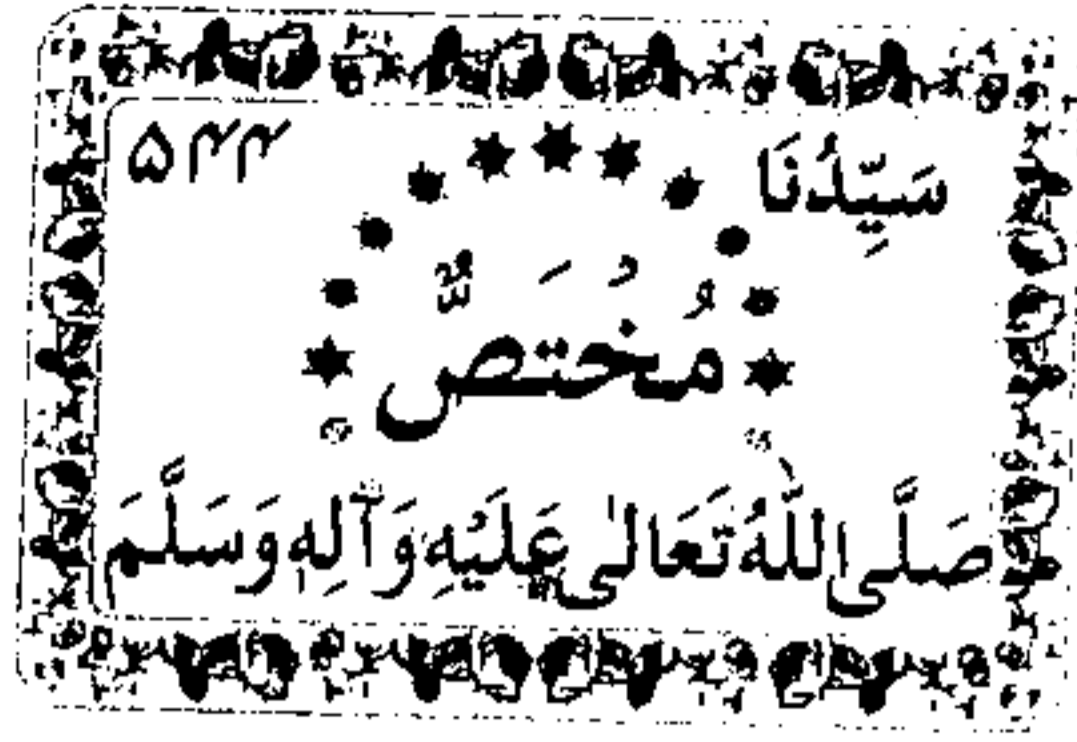 سَيِّدُنَا ۵۴۴
مُخْتَصٌّ
صَلَّى اللّٰهُ تَعَالٰى عَلَيْهِ وَآلِهٖ وَسَلَّمَ